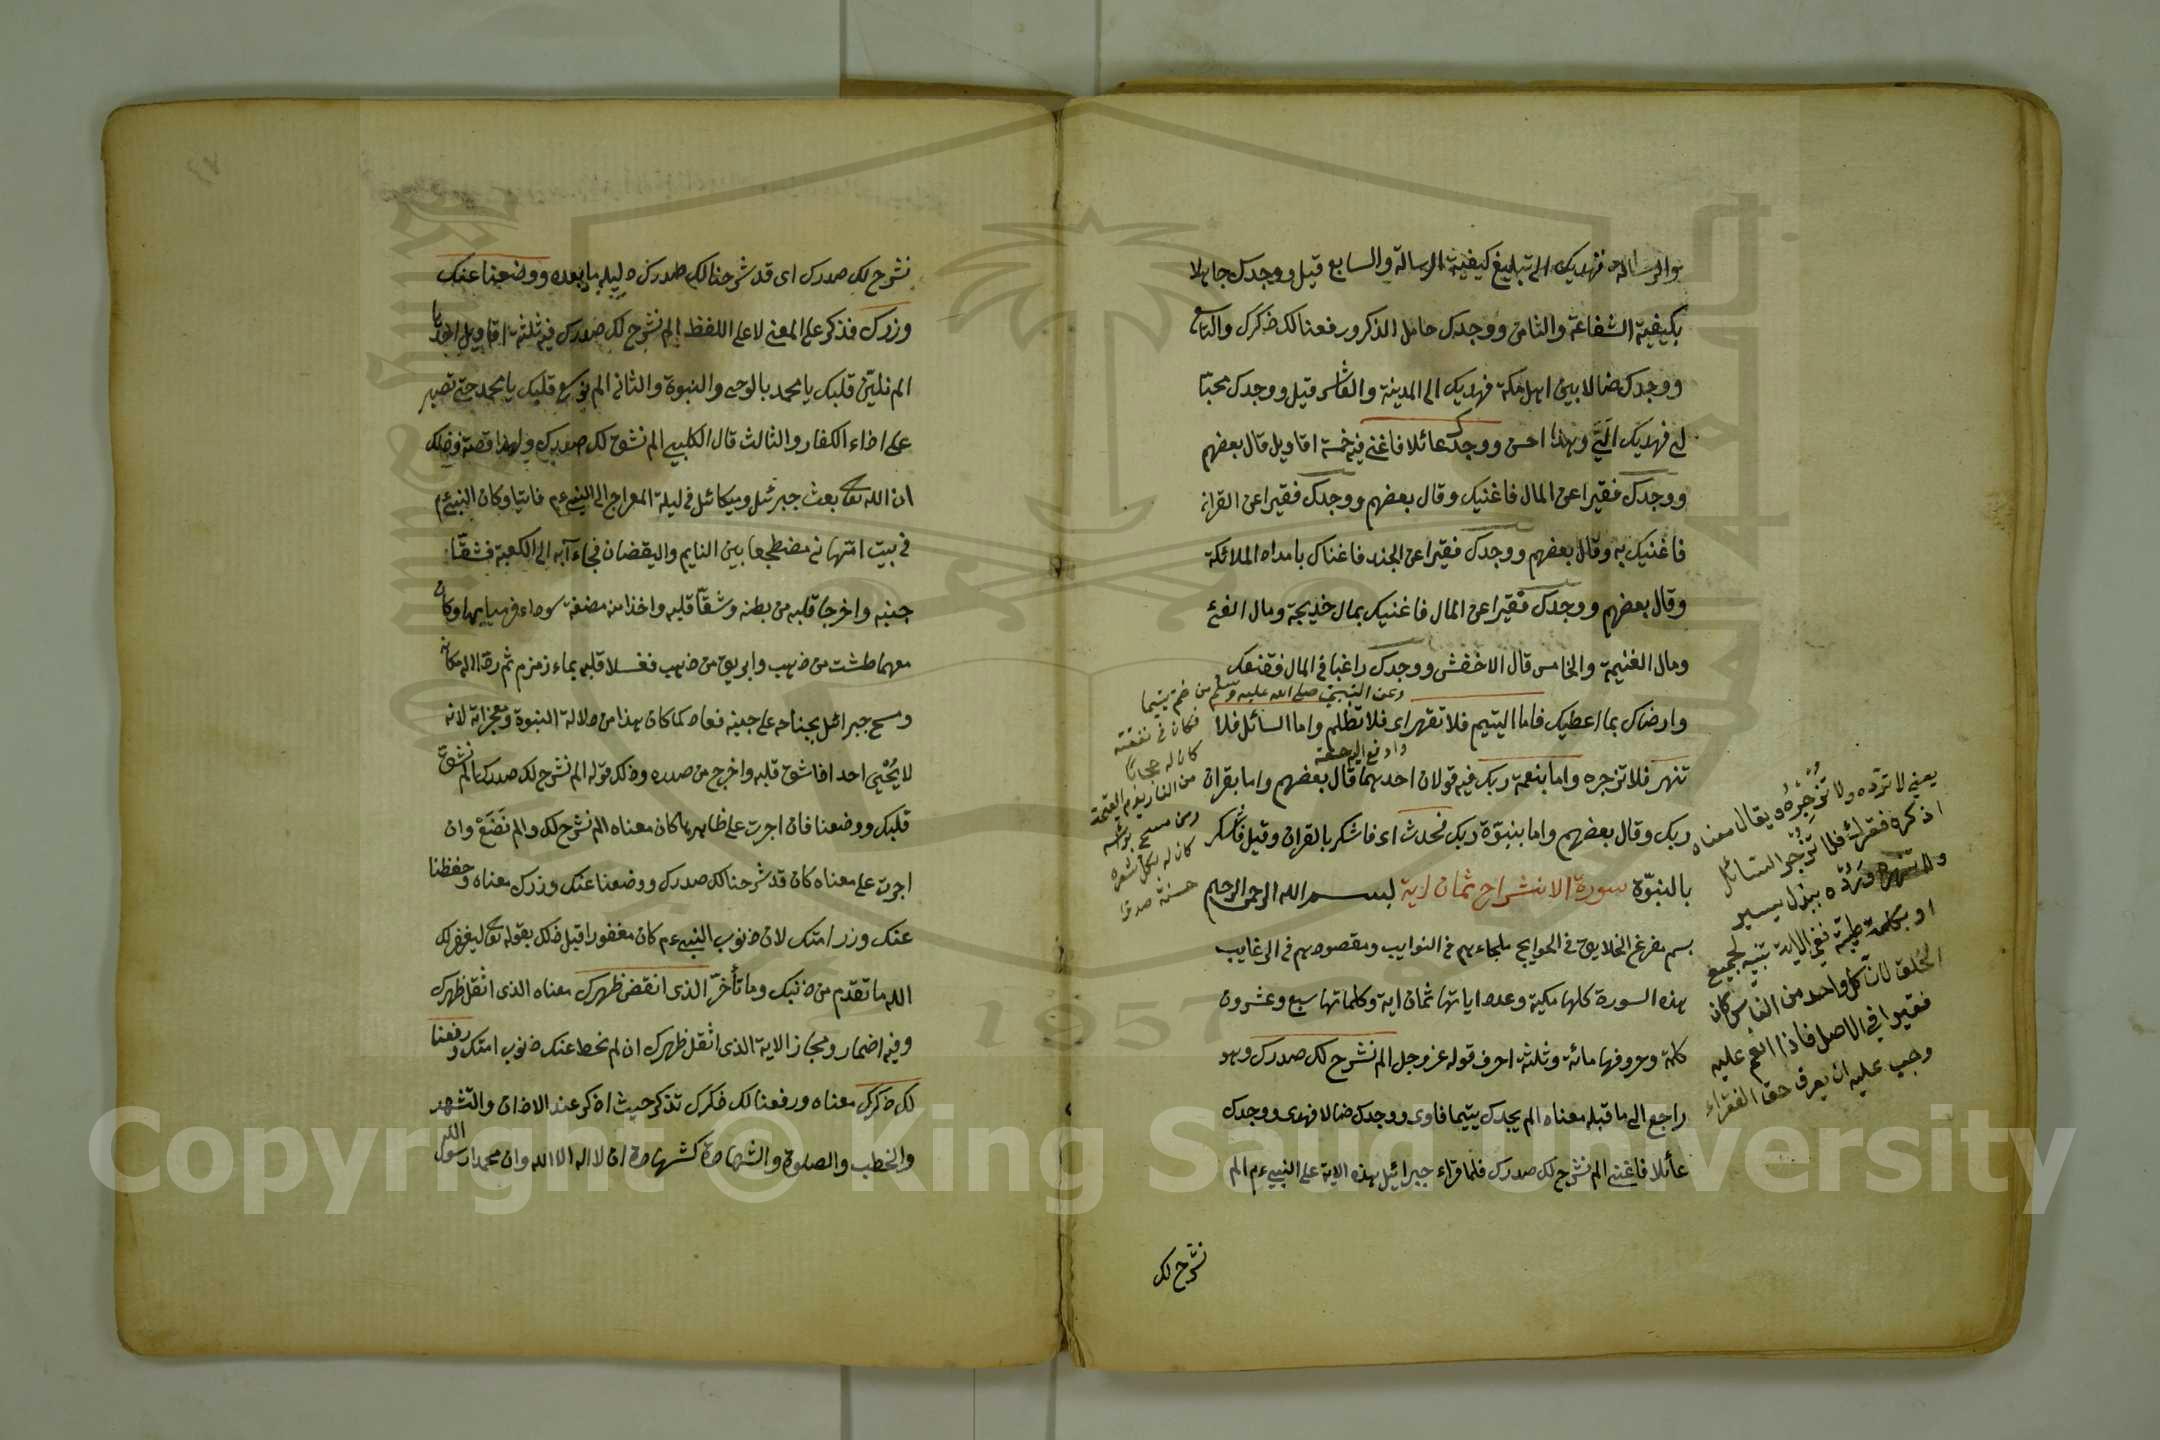 والرسالة فهديك الى تبليغ كيفية الرسالة والسابع قيل ووجدك جاهلا
بكيفية الشفاعة والثامن ووجدك حامل الذكر ورفعنا لك ذكرك والتاسع
ووجدك ضالا بين اهل مكة فهديك الى المدينة والعاشر قيل ووجدك محبا
لى فهديك الَىَّ وهذا احسن ووجدك عائلا فاغنى فيه خمسة اقاويل قال بعضهم
ووجدك فقيرا عن المال فاغنيك وقال بعضهم ووجدك فقيرا عن القران
فاغنيك به وقال بعضهم ووجدك فقيرا عن الجند فاغناك بامداد الملائكة
وقال بعضهم ووجدك فقيرا عن المال فاغنيك بمال خديجة ومال الفئ
ومال الغنيمة والخامس قال الاخفش ووجدك راغبا فى المال فقنعك
وارضاك بما اعطيك فاما اليتيم فلا تقهر اى فلا تظلم واما السائل فلا
تنهر فلا تزجره واما بنعمة ربك فيه قولان احدهما قال بعضهم واما بقران
ربك وقال بعضهم واما بنبوة ربك فحدث اى فاشكر بالقران وقيل فاشكر
بالنبوّة سورة الانشراح ثمان اية بسم الله الرحمن الرحيم
بسم مفرغ الخلايق فى الحوايج ملجاءهم فى النوايب ومقصودهم فى الرغايب
هذه السورة كلها مكية وعدد اياتها ثمان اية وكلماتها سبع وعشرون
كلمة وحروفها مائة وثلثة احرف قوله عز وجل الم نشرح لك صدرك وهو
راجع الى ما قبله معناه الم يجدك يتيما فاوى ووجدك ضالا فهدى ووجدك
عائلا فاغنى الم نشرح لك صدرك فلما قراء جبرائيل هذه الاية على النبى ءم الم
نشرح لك
وعن النبى صلى الله عليه وسلم من ضم يتيما
فكان فى نفقته
كان له حجابا
من النار يوم القيمة
ومن مسح براسه
كان له بكل شعرة
حسنة
يعنى لا تردّه ولا تزجره ويقال معناه
اذكره فقرك فلا تزجر السائل
ولا تنهره وردّه ببذل يسير
او بكلمة طيبة ففى الاية تنبيه لجميع
الخلق لانّ كل واحد من الناس كان
فقيرا فى الاصل فاذا انعم عليه
وجب عليه ان يعرف حق الفقراء
نشرح لك صدرك اى قد شرحنا لك صدرك دليله ما بعده ووضعنا عنك
وزرك فذكر على المعنى لا على اللفظ الم نشرح لك صدرك فيه ثلثة اقاويل احدها
الم نليّن قلبك يا محمد بالوحى والنبوة والثانى الم نوسع قلبك يا محمد حتى تصبر
على اذاء الكفار والثالث قال الكلبى الم نشق لك صدرك ولهذا قصة وذلك
ان الله تعالى بعث جبرئيل وميكائل فى ليلة المعراج الى النبى ءم فاتيا وكان النبى ءم
فى بيت امّ هانى مضطجعا بين النايم واليقضان فجاءا به الى الكعبة فشقّا
جنبه واخرجا قلبه من بطنه وشقّا قلبه واخذا منه مضغة سوداء فرميا بها وكان
معهما طشت من ذهب وابريق من ذهب فغسلا قلبه بماء زمزم ثم ردّا الى مكانه
ومسح جبرائل بجناحه على جنبه فعاد كما كان هذا من دلالة النبوة ومعجزاته لانه
لا يُحْيى احد اذا شق قلبه واخرج من صدره وذلك قوله الم نشرح لك صدرك الم نشق
قلبك ووضعنا فان اجرت على ظاهرها كان معناه الم نشرح لك والم نَضَعْ وان
اجرت على معناه كان قد شرحنا لك صدرك ووضعنا عنك وزرك معناه وحفظنا
عنك وزر امتك لان ذنوب النبى ءم كان مغفورا قيل ذلك بقوله تعالى ليغفر لك
الله ما تقدم من ذنبك وما تأخّر الذى انقض ظهرك معناه الذى اثقل ظهرك
وفيه اضمار ومجاز الاية الذى اثقل ظهرك ان لم نحط عنك ذنوب امتك ورفعنا
لك ذكرك معناه ورفعنا لك ذكرك تذكر حيث اذكر عند الاذان والتشهد
والخطب والصلوة والشهادة كشهادة ان لا اله الا الله وان محمدا رسول الله
1957
Copyright © King Saud University